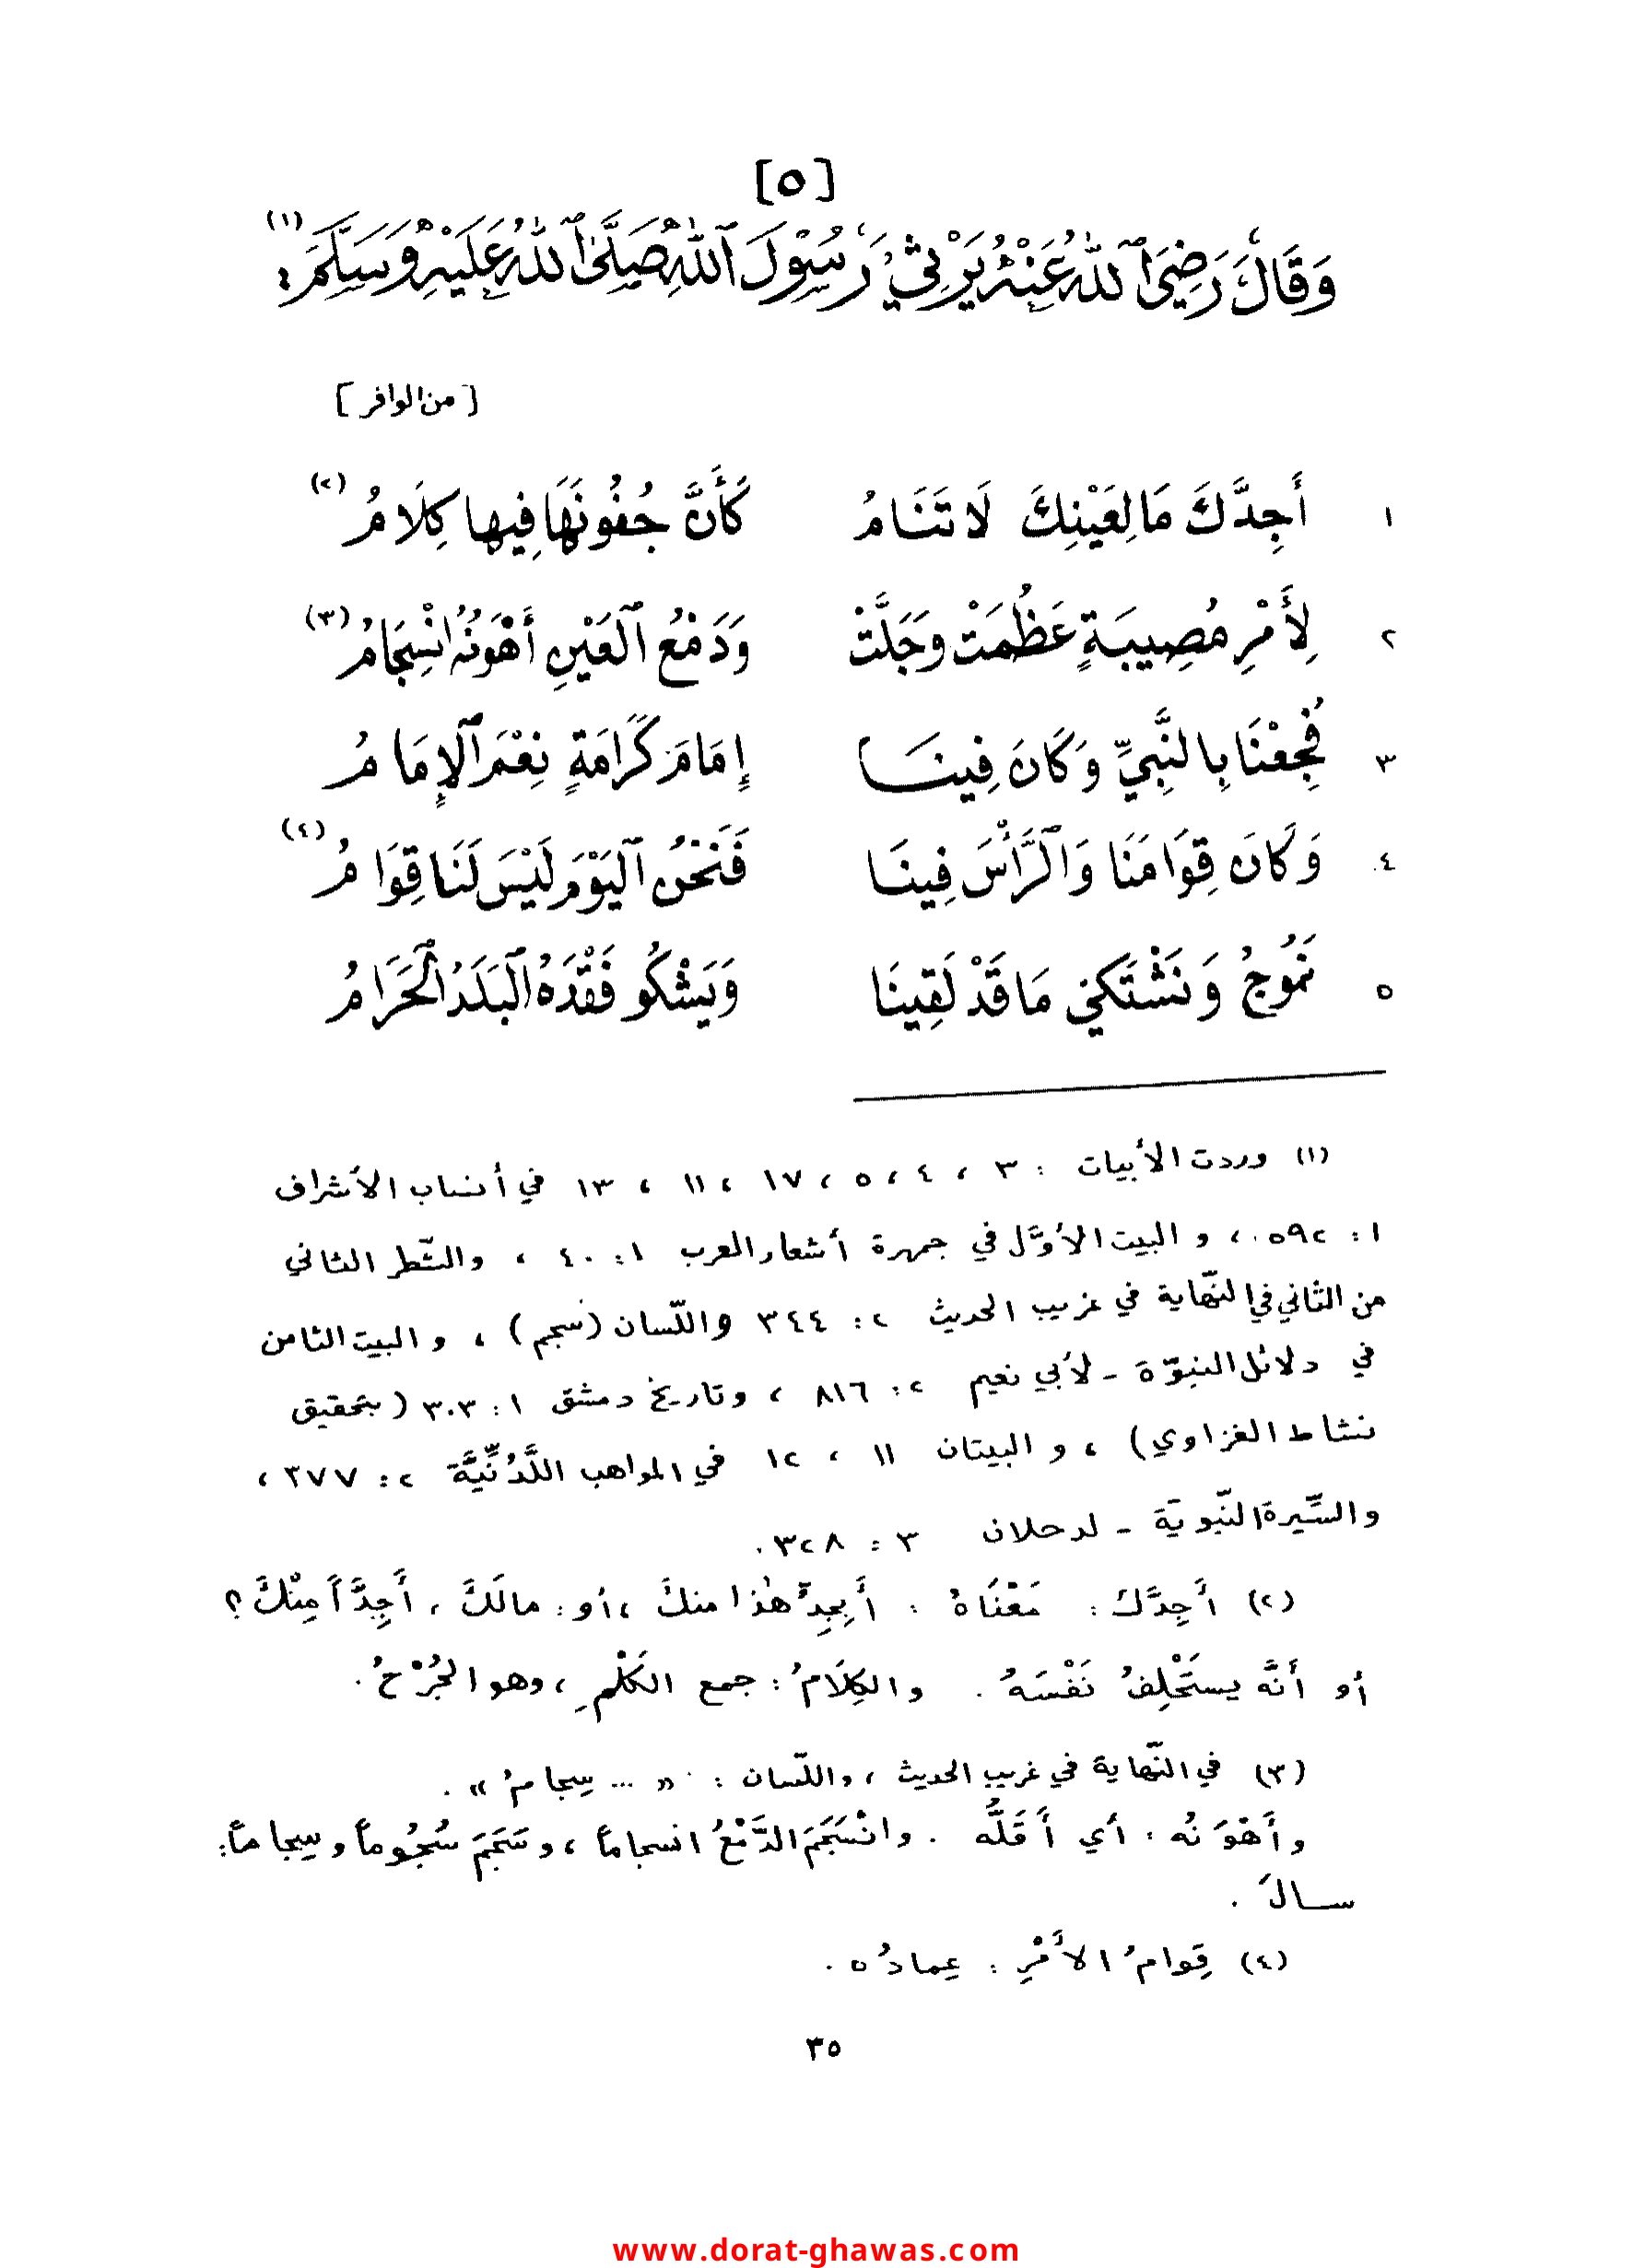 [٥]
وَقَالَ رَضِيَ ٱللهُ عَنْهُ يَرْثِيْ رَسُوْلَ ٱللهِ صَلَّى ٱللهُ عَلَيْهِ وَسَلَّمَ : (١)
[ من الوافر ]
١ أَجِدَّكَ مَا لِعَيْنِكَ لَا تَنَامُ كَأَنَّ جُفُونَهَا فِيها كِلَامُ (٢)
٢ لِأَمْرِ مُصِيبَةٍ عَظُمَتْ وَجَلَّتْ وَدَمْعُ ٱلْعَيْنِ أَهْوَنُهُ انْسِجَامُ (٣)
٣ فُجِعْنَا بِالنَّبِيِّ وَكَانَ فِينَا إِمَامَ كَرَامَةٍ نِعْمَ ٱلْإِمَامُ
٤ وَكَانَ قِوَامَنَا وَٱلرَّأْسَ فِينَا فَنَحْنُ ٱلْيَوْمَ لَيْسَ لَنَا قِوَامُ (٤)
٥ نَمُوجُ وَنَشْتَكِي مَا قَدْ لَقِينَا وَيَشْكُو فَقْدَهُ ٱلْبَلَدُ ٱلْحَرَامُ
(١) وردت الأبيات : ٣ ، ٤ ، ٥ ، ١٧ ، ١١ ، ١٣ في أنساب الأشراف
١ : ٥٩٢ ، و البيت الأوّل في جمهرة أشعار العرب ١ : ٤٠ ، والشّطر الثاني
من الثّاني في النّهاية في غريب الحديث ٢ : ٣٤٤ واللّسان (سجم) ، و البيت الثامن
في دلائل النبوّة - لأبي نعيم ٢ : ٨١٦ ، وتاريخ دمشق ١ : ٣٠٣ ( بتحقيق
نشاط الغزاوي) ، و البيتان ١١ ، ١٢ في المواهب اللَّدُنِّيَّة ٢ : ٣٧٧ ،
والسِّيرة النّبويّة - لدحلان ٣ : ٣٢٨ .
(٢) أَجِدَّكَ : مَعْنَاهُ : أَبِجِدٍّ هٰذا منكَ ، أو : مالَكَ ، أَجِدَّاً مِنْكَ ؟
أو أَنَّه يستَحْلِفُ نَفْسَهُ . والكِلَامُ : جمع الكَلْمِ ، وهو الجُرْحُ .
(٣) في النّهاية في غريب الحديث ، واللّسان : « ... سِجامُ » .
وأَهْوَنُه : أي أَقَلُّه . وانْسَجَمَ الدَّمْعُ انسجاماً ، وسَجَمَ سُجُوماً وسِجاماً :
سـالَ .
(٤) قِوامُ الأَمْرِ : عِمادُه .
٣٥
www.dorat-ghawas.com